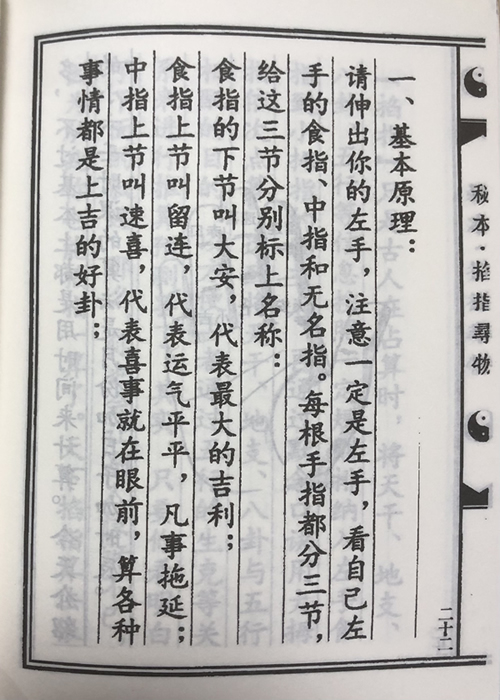 一、基本原理：
请伸出你的左手，注意一定是左手，看自己左
手的食指、中指和无名指。每根手指都分三节，
给这三节分别标上名称：
食指的下节叫大安，代表最大的吉利；
食指上节叫留连，代表运气平平，凡事拖延；
中指上节叫速喜，代表喜事就在眼前，算各种
事情都是上吉的好卦；
秘本·掐指尋物
二十二